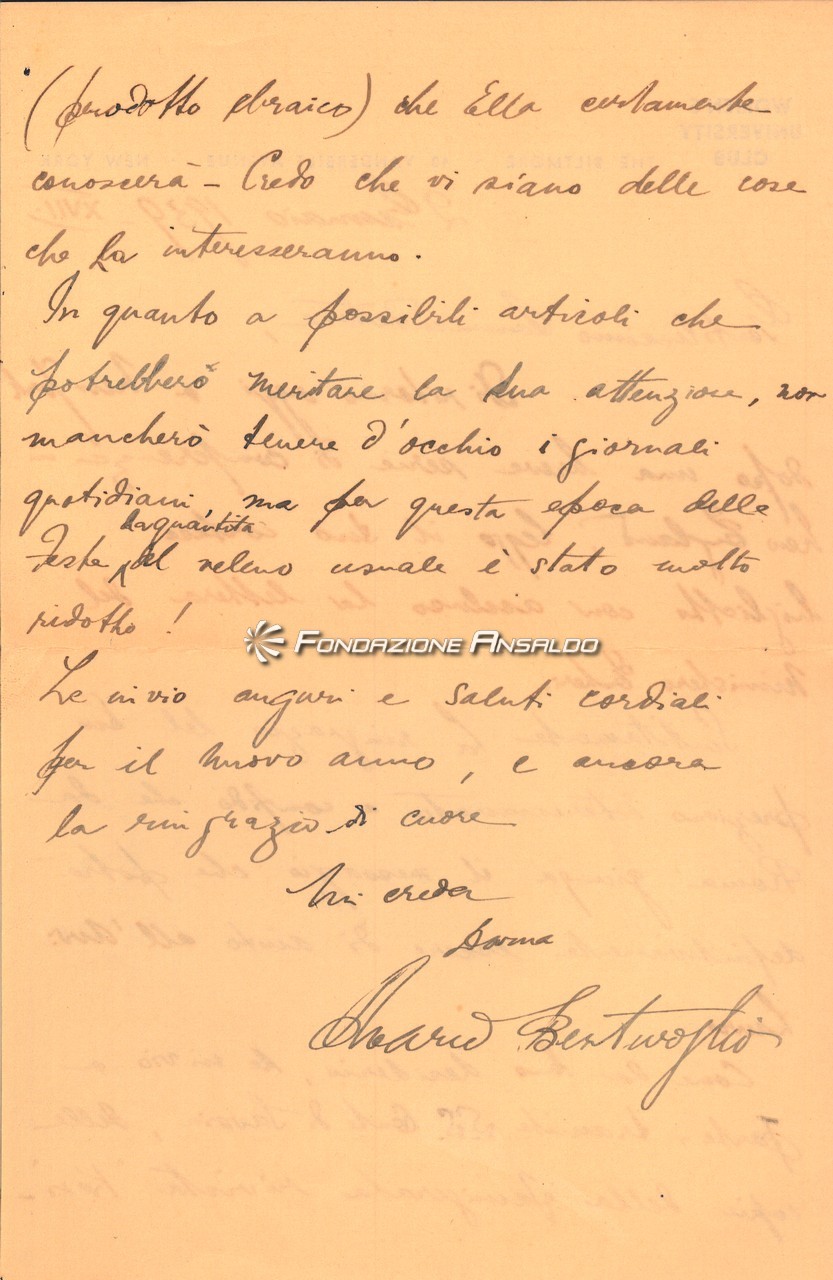 (prodotto ebraico) che Ella certamente
conoscerà - Credo che vi siano delle cose
che La interesseranno.
In quanto a possibili articoli che
potrebbero meritare la Sua attenzione, non
mancherò tenere d'occhio i giornali
quotidiani, ma per questa epoca delle
la quantità
Feste del veleno usuale è stato molto
ridotto!
FONDAZIONE ANSALDO
Le invio auguri e saluti cordiali
per il nuovo anno, e ancora
la ringrazio di cuore
Mi creda
Mario Bentivoglio
WOMEN'S
UNIVERSITY
CLUB
THE BILTMORE
NEW YORK
Gennaio 1939 XVII